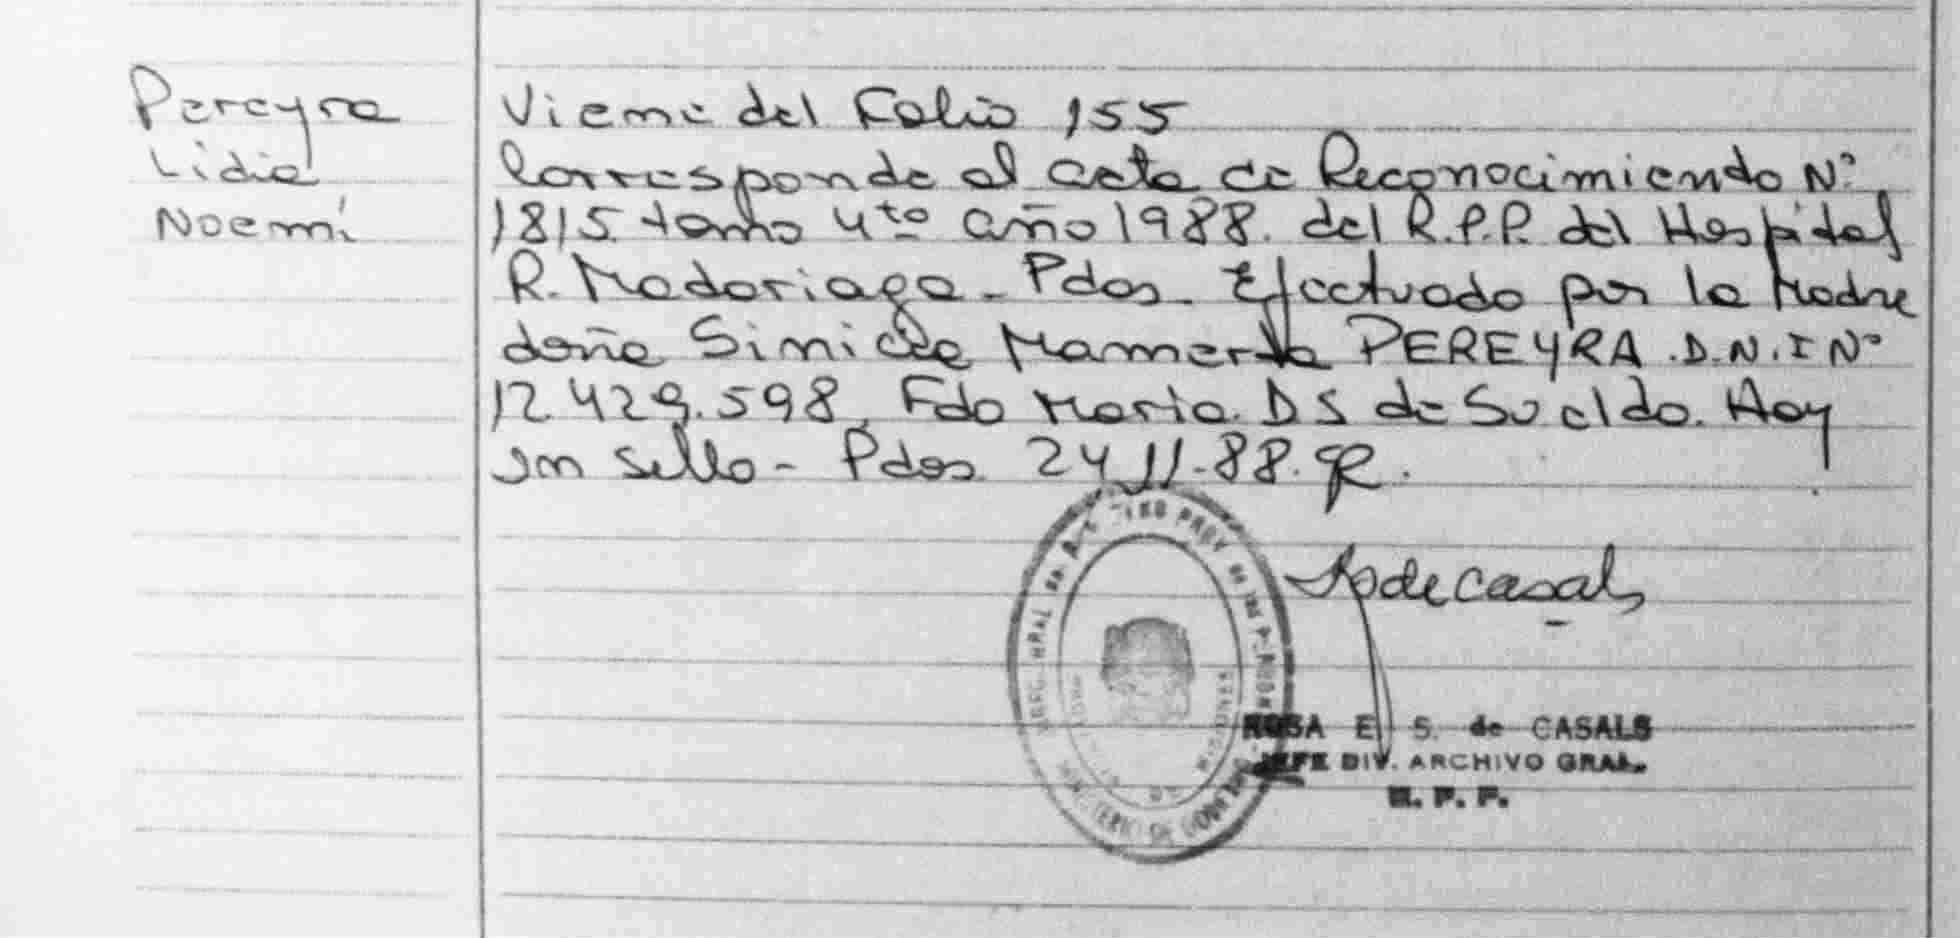 Pereyra
Lidia
Noemí
Viene del Folio 155
Corresponde al acta de Reconocimiento Nº
1815 tomo 4to año 1988. del R.P.P. del Hospital
R. Madariaga - Pdas. Efectuado por la Madre
doña Mamerta PEREYRA. D.N.I Nº
12.429.598, Fdo Maria. D S de Sueldo. Hay
un sello - Pdas 24-11-88.
DE LAS PERSONAS
MINISTERIO DE GOBIERNO
de Casals
ROSA E. S. de CASALS
JEFE DIV. ARCHIVO GRAL.
R. P. P.